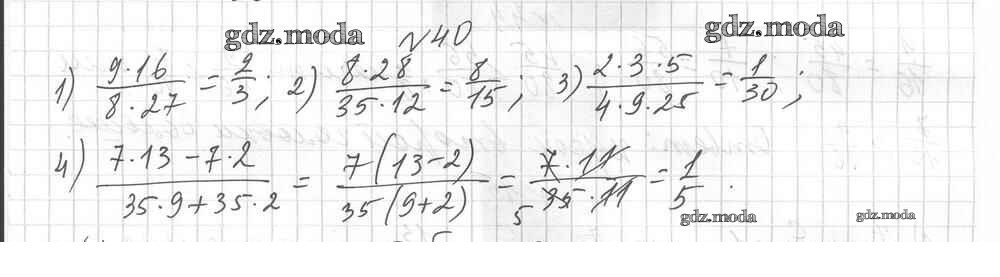 gdz.moda №40 gdz.moda
1) (9·16)/(8·27) = 2/3; 2) (8·28)/(35·12) = 8/15; 3) (2·3·5)/(4·9·25) = 1/30;
4) (7·13-7·2)/(35·9+35·2) = (7(13-2))/(35(9+2)) = (7·11)/(35·11) = 1/5.
5
gdz.moda gdz.moda